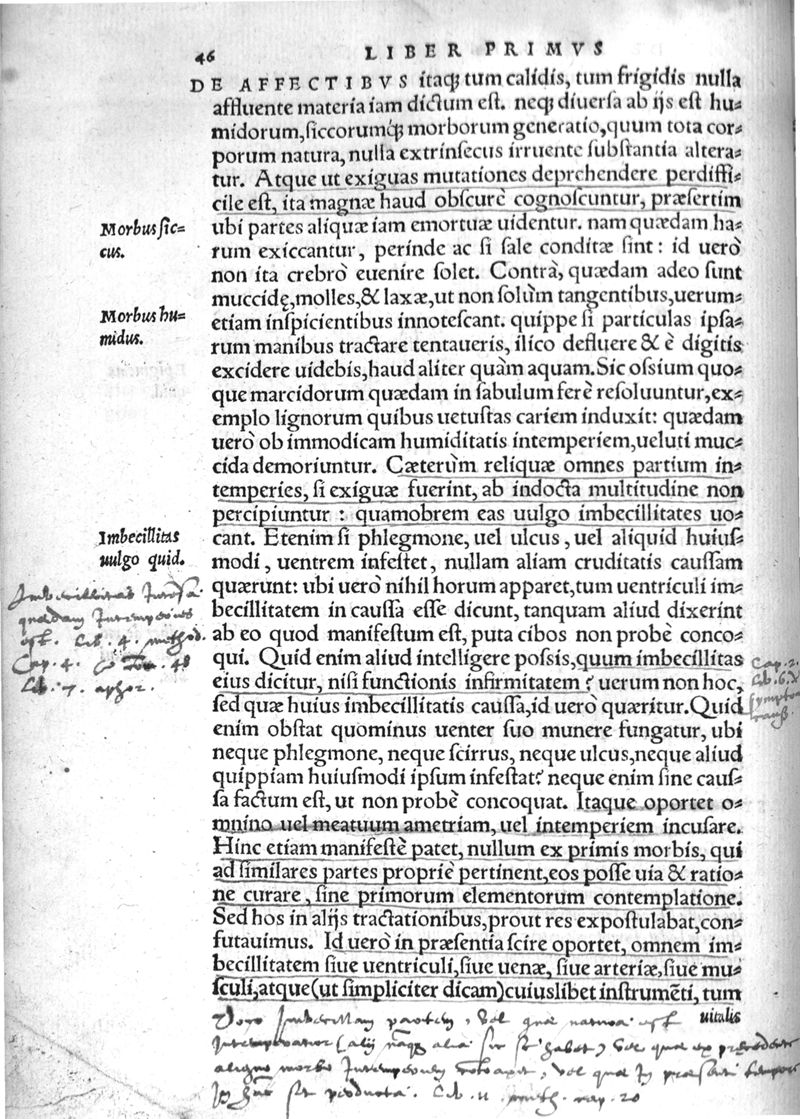 46 LIBER PRIMVS
DE AFFECTIBVS itaq́; tum calidis, tum frigidis nulla
affluente materia iam dictum est. neq́; diuersa ab ijs est hu=
midorum, siccorumq́; morborum generatio, quum tota cor=
porum natura, nulla extrinsecus irruente substantia altera=
tur. Atque ut exiguas mutationes deprehendere perdiffi=
cile est, ita magnæ haud obscurè cognoscuntur, præsertim
Morbus sic=
cus.
ubi partes aliquæ iam emortuæ uidentur. nam quædam ha=
rum exiccantur, perinde ac si sale conditæ sint: id uerò
non ita crebrò euenire solet. Contrà, quædam adeo sunt
muccidę, molles, & laxæ, ut non solùm tangentibus, uerum=
Morbus hu=
midus.
etiam inspicientibus innotescant. quippe si particulas ipsa=
rum manibus tractare tentaueris, ilico defluere & è digitis
excidere uidebis, haud aliter quàm aquam. Sic ossium quo=
que marcidorum quædam in sabulum ferè resoluuntur, ex=
emplo lignorum quibus uetustas cariem induxit: quædam
uerò ob immodicam humiditatis intemperiem, ueluti muc=
cida demoriuntur. Cæterùm reliquæ omnes partium in=
temperies, si exiguæ fuerint, ab indocta multitudine non
percipiuntur: quamobrem eas uulgo imbecillitates uo=
Imbecillitas
uulgo quid.
cant. Etenim si phlegmone, uel ulcus, uel aliquid huius=
modi, uentrem infestet, nullam aliam cruditatis caussam
quærunt: ubi uerò nihil horum apparet, tum uentriculi im=
becillitatem in caussa esse dicunt, tanquam aliud dixerint
ab eo quod manifestum est, puta cibos non probè conco=
qui. Quid enim aliud intelligere possis, quum imbecillitas
eius dicitur, nisi functionis infirmitatem? uerum non hoc,
sed quæ huius imbecillitatis caussa, id uerò quæritur. Quid
enim obstat quominus uenter suo munere fungatur, ubi
neque phlegmone, neque scirrus, neque ulcus, neque aliud
quippiam huiusmodi ipsum infestat? neque enim sine caus=
sa factum est, ut non probè concoquat. Itaque oportet o=
mnino uel meatuum ametriam, uel intemperiem incusare.
Hinc etiam manifestè patet, nullum ex primis morbis, qui
ad similares partes propriè pertinent, eos posse uia & ratio=
ne curare, sine primorum elementorum contemplatione.
Sed hos in alijs tractationibus, prout res expostulabat, con=
futauimus. Id uerò in præsentia scire oportet, omnem im=
becillitatem siue uentriculi, siue uenæ, siue arteriæ, siue mu=
sculi, atque (ut simpliciter dicam) cuiuslibet instrumēti, tum
uitalis
Imbecillitas
quædam intemperies
est. Lib. 4. method.
Cap. 4. 48
Lib. 7. aphor.
Cap. 2.
Lib. 6.
sympto
caus.
Voco imbecillam partem, vel quæ natura est
vel quæ ex præcedente
morbo intemperiem vel quæ in præsenti tempore
sit producta. Lib. 11. meth. cap. 20